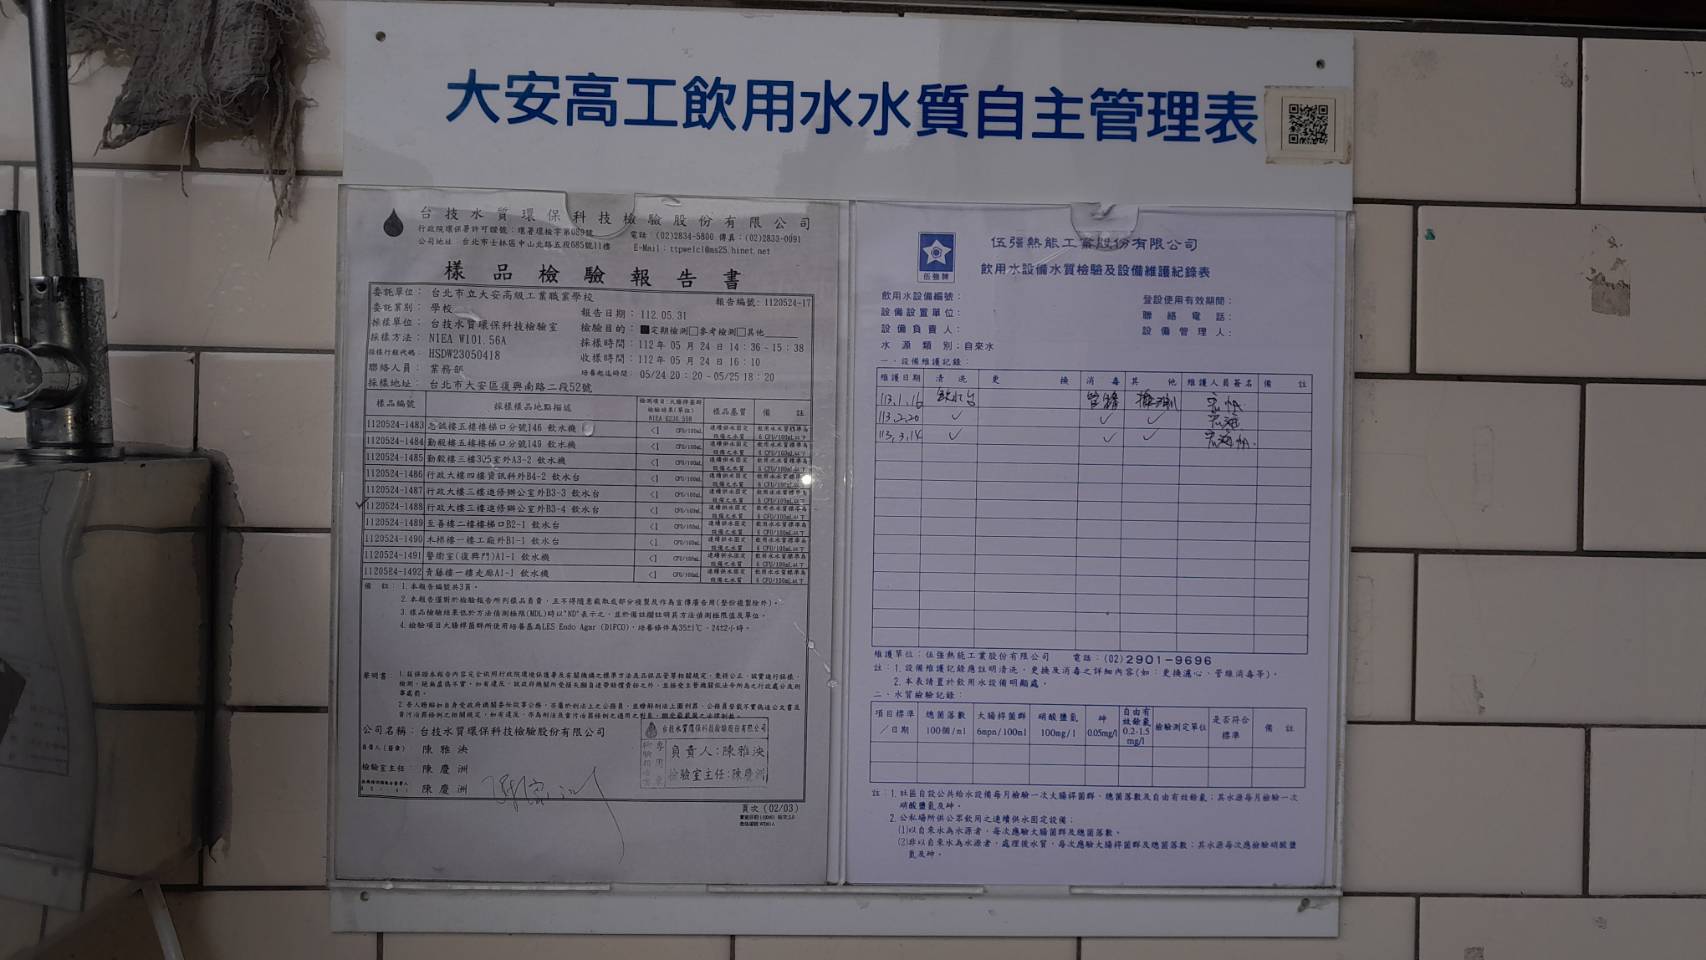 大安高工飲用水水質自主管理表
台技水質環保科技檢驗股份有限公司
行政院環保署許可證號：環署環檢字第089號
電話：(02)2834-5800 傳真：(02)2833-0091
公司地址：台北市士林區中山北路五段685號11樓
E-Mail：ttpwelcl@ms25.hinet.net
樣品檢驗報告書
委託單位：台北市立大安高級工業職業學校
報告編號：1120524-17
委託業別：學校
報告日期：112.05.31
採樣單位：台技水質環保科技檢驗室
檢驗目的：■定期檢測□參考檢測□其他
採樣方法：NIEA W101.56A
採樣時間：112年 05月 24日 14：36-15：38
採樣行程代碼：HSDW23050418
收樣時間：112年 05月 24日 16：10
聯絡人員：業務部
培養起迄時間：05/24 20：20-05/25 18：20
採樣地址：台北市大安區復興南路二段52號
樣品編號 採樣樣品地點描述 檢測項目:大腸桿菌群 檢驗結果(單位) 樣品基質 備註
1120524-1483 忠誠樓五樓樓梯口分號146 飲水機 <1 CFU/100mL
1120524-1484 勤毅樓五樓樓梯口分號149 飲水機 <1 CFU/100mL
1120524-1485 勤毅樓三樓305室外A3-2 飲水機 <1 CFU/100mL
1120524-1486 行政大樓四樓資訊科外B4-2 飲水台 <1 CFU/100mL
1120524-1487 行政大樓三樓進修辦公室外B3-3 飲水台 <1 CFU/100mL
1120524-1488 行政大樓三樓進修辦公室外B3-4 飲水台 <1 CFU/100mL
1120524-1489 至善樓二樓樓梯口B2-1 飲水台 <1 CFU/100mL
1120524-1490 木棉樓一樓工廠外B1-1 飲水台 <1 CFU/100mL
1120524-1491 警衛室(復興門)A1-1 飲水機 <1 CFU/100mL
1120524-1492 青藤樓一樓走廊A1-1 飲水機 <1 CFU/100mL
備註：1.本報告編號共3頁。
2.本報告僅對於檢驗報告所列樣品負責，且不得隨意截取或部分複製及作為宣傳廣告用(整份複製除外)。
3.樣品檢驗結果低於方法偵測極限(MDL)時以"ND"表示之，並於備註欄註明其方法偵測極限值及單位。
4.檢驗項目大腸桿菌群所使用培養基為LES Endo Agar (DIFCO)，培養條件為35±1℃、24±2小時。
聲明書：
公司名稱：台技水質環保科技檢驗股份有限公司
負責人(簽章) 陳雅泱
檢驗室主任：陳慶洲
陳慶洲
台技水質環保科技檢驗股份有限公司
負責人:陳雅泱
檢驗室主任:陳慶洲
頁次 (02/03)
伍強牌
伍強熱能工業股份有限公司
飲用水設備水質檢驗及設備維護紀錄表
飲用水設備編號：
登設使用有效期間：
設備設置單位：
聯絡電話：
設備負責人：
設備管理人：
水源類別：自來水
一、設備維護記錄：
維護日期 清洗 更換 消毒 其他 維護人員簽名 備註
113.1.16 飲水台
113.2.20 ✓ ✓ ✓
113.3.14 ✓ ✓ ✓
維護單位：伍強熱能工業股份有限公司 電話：(02)2901-9696
註：1.設備維護記錄應註明清洗、更換及消毒之詳細內容(如：更換濾心、管維消毒等)。
2.本表請置於飲用水設備明顯處。
二、水質檢驗記錄：
項目標準/日期 總菌落數 100個/ml 大腸桿菌群 6mpn/100ml 硝酸鹽氮 100mg/l 砷 0.05mg/l 自由有效餘氯 0.2-1.5 mg/l 檢驗測定單位 是否符合標準 備註
註：1.社區自設公共給水設備每月檢驗一次大腸桿菌群、總菌落數及自由有效餘氯；其水源每月檢驗一次
硝酸鹽氮及砷。
2.公私場所供公眾飲用之連續供水固定設備：
(1)以自來水為水源者，每次應驗大腸菌群及總菌落數。
(2)非以自來水為水源者，處理後水質，每次應驗大腸桿菌群及總菌落數；其水源每次應檢驗硝酸鹽
氮及砷。